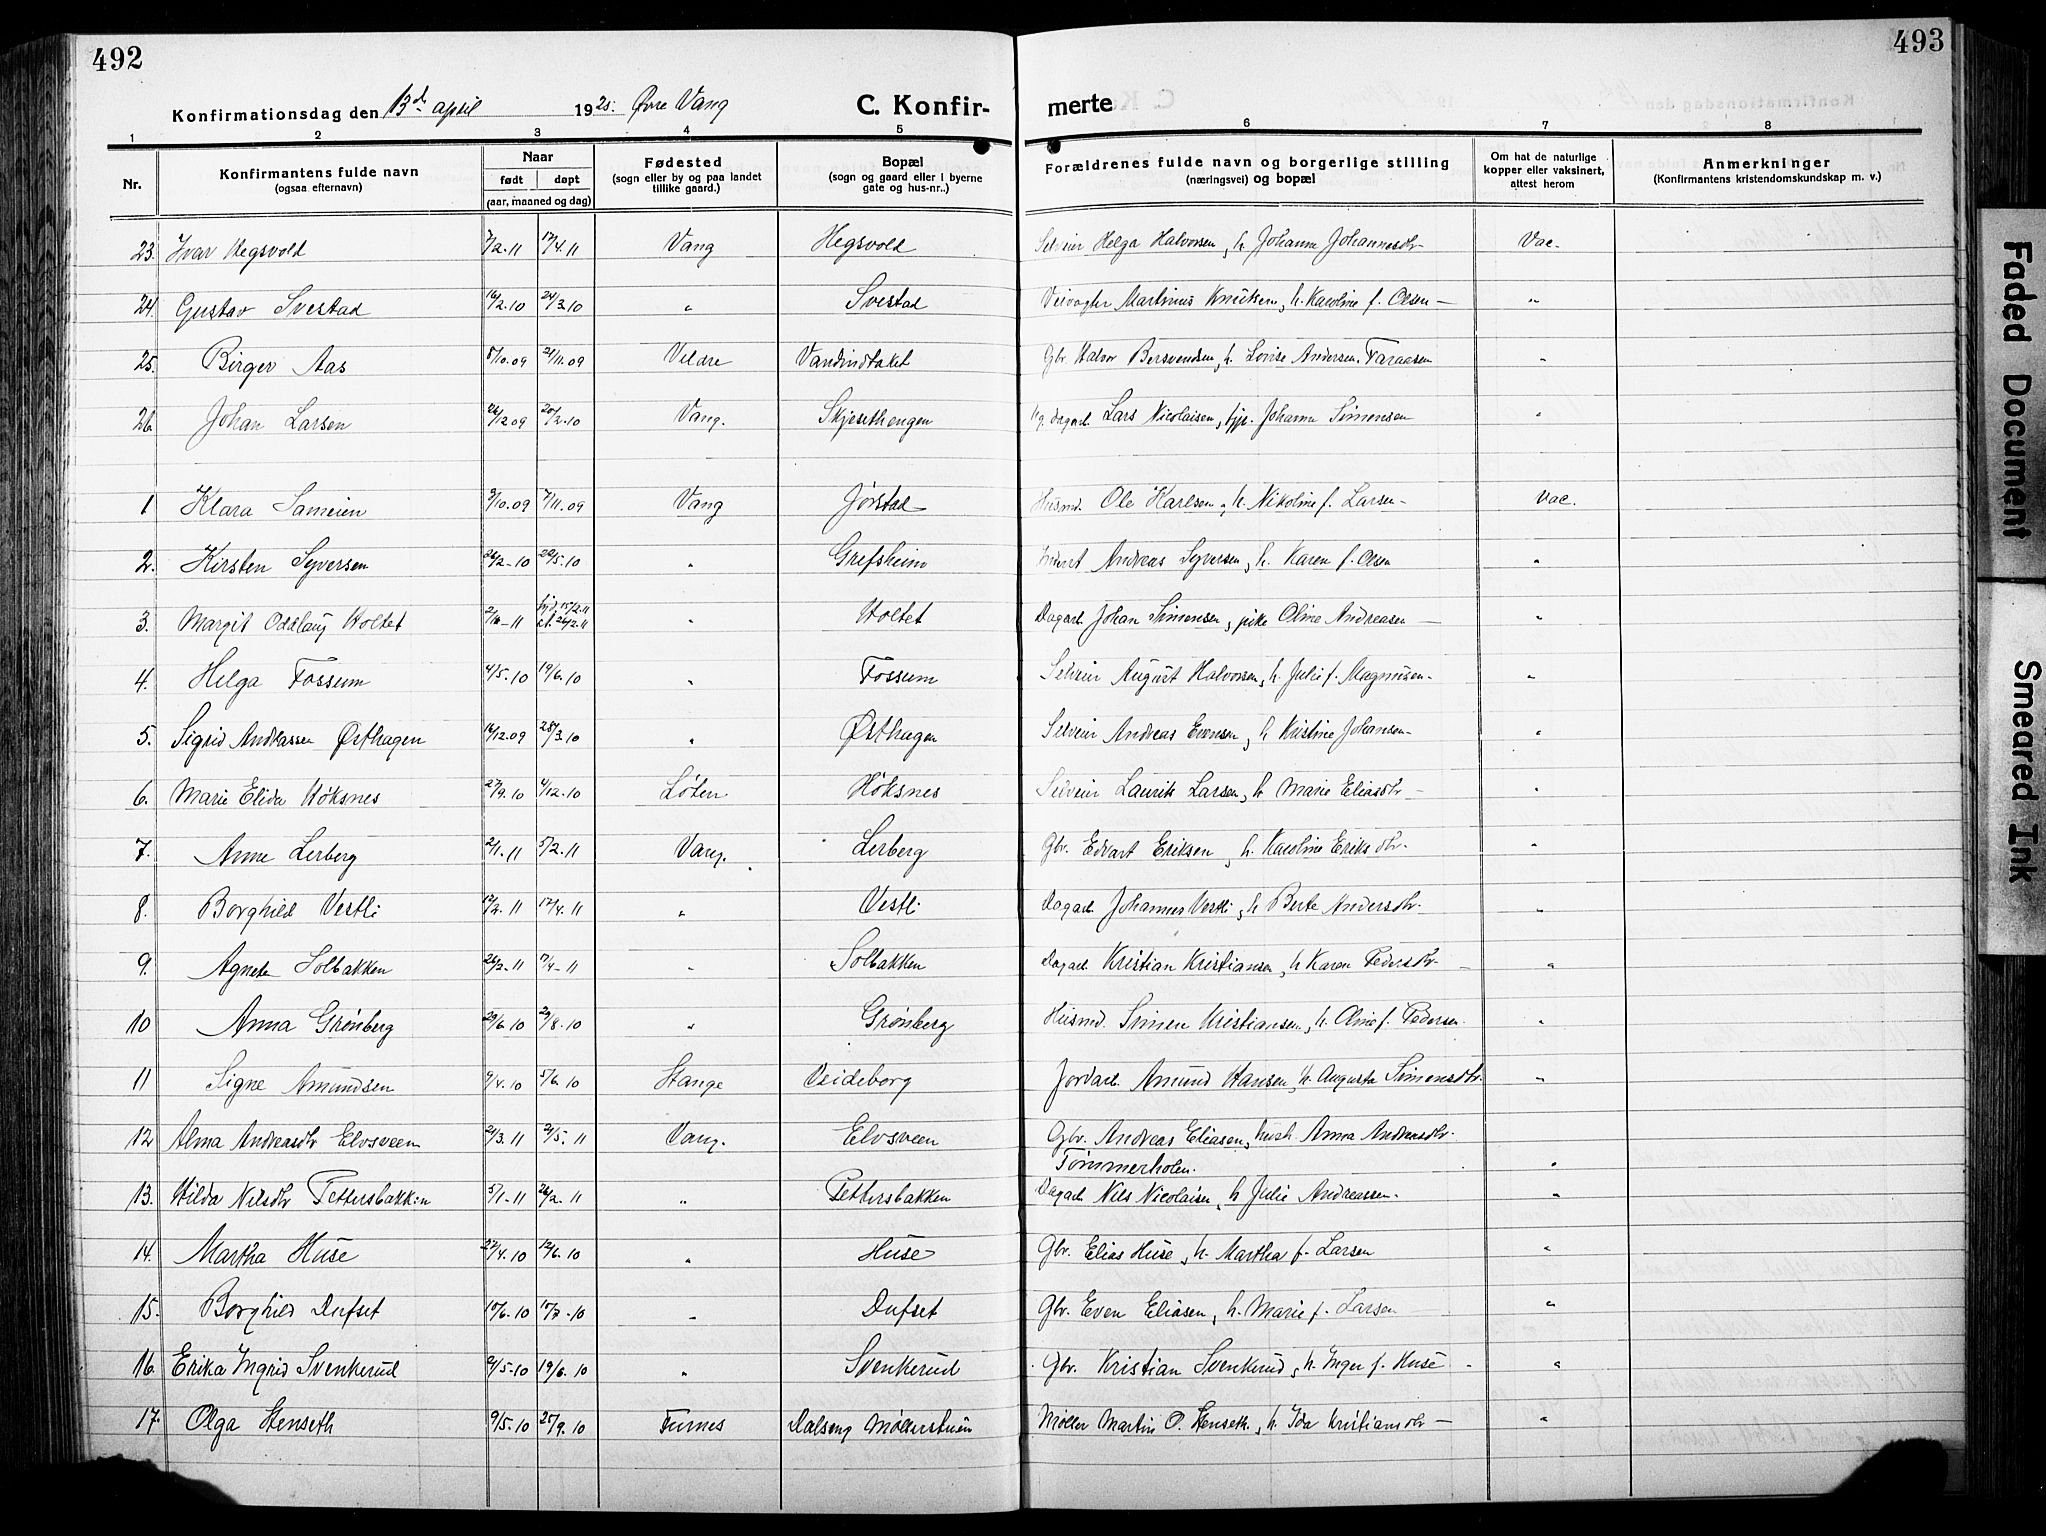 492
493
Konfirmationsdag den 13de april 1925. Øvre Vang
C. Konfir-
merte
1 2 3 4 5 6 7 8
Nr.
Konfirmantens fulde navn
(ogsaa efternavn)
Naar
født døpt
(aar, maaned og dag)
Fødested
(sogn eller by og paa landet
tillike gaard.)
Bopæl
(sogn og gaard eller i byerne
gate og hus-nr..)
Forældrenes fulde navn og borgerlige stilling
(næringsvei) og bopæl
Om hat de naturlige
kopper eller vaksinert,
attest herom
Anmerkninger
(Konfirmantens kristendomskundskap m. v.)
23. Ivar Hegsvold 7/2.11 17/4.11 Vang Hegsvold Selveier Helga Halvorsen, h. Johanne Johannesdtr Vac.
24. Gustav Svestad 16/2.10 24/3.10 " Svestad Veivogter Martinus Knutsen, h. Karoline f. Olsen "
25. Birger Aas 8/10.09 21/11.09 Veldre Vandindtaket Gbr. Halvor Bersvendsen, h. Lovise Andersen. Faraasen "
26. Johan Larsen 26/12 09 20/2.10 Vang. Skjesethengen Ug. dagarb. Lars Nicolaisen, pip. Johanne Simensen "
1 Klara Sameien 3/10.09 7/11.09 Vang Jørstad Husmd. Ole Karlsen, h. Nikoline f. Larsen Vac.
2. Kirsten Syversen 26/2-10 22/5.10 " Grefsheim Andreas Syversen, h. Karen f. Olsen "
3. Margit Oddlaug Holtet hjd. 15/2.11 26/2.11 " Holtet Dagarb. Johan Simensen, pike Oline Andreasen "
4. Helga Fossum 4/5.10 19/6.10 " Fossum Selveier August Halvorsen, h. Julie f. Magnusen "
5. Sigrid Andreassen Østhagen 16/12.09 28/3.10 " Østhagen Selveier Andreas Evensen, h. Kristine Johansen "
6. Marie Elida Høksnes 27/9.10 4/12.10 Løten Høksnes Selveier Laurits Larsen, h. Marie Eliasdtr "
7. Anne Lerberg 2/1.11 5/2.11 Vang. Lerberg Gbr. Edvart Eriksen, h. Karoline Eriksdtr. "
8. Borghild Vestli 12/2.11 17/4.11 " Vestli Dagarb. Johannes Vestli, h. Berte Andersdtr. "
9. Agnete Solbakken 26/2-11 17/4-11 " Solbakken Dagarb. Kristian Kristiansen, h. Karen Pedersdtr. "
10 Anna Grønberg 29/6.10 29/8.10 " Grønberg Husmd. Simen Kristiansen, h. Oline f. Pedersen. "
11 Signe Amundsen 9/4.10 5/6.10 Stange Veideborg Jordarb. Amund Hansen, h. Augusta Simensdtr. "
12 Alma Andreasdtr Elvsveen 21/3.11 21/5.11 Vang. Elvsveen Gbr. Andreas Eliasen, hush. Anna Andreasdtr.
Tømmerholen. "
13. Hilda Nilsdtr Pettersbakken 5/1-11 26/2.11 " Pettersbakken Dagarb. Nils Nicolaisen, h Julie Andreassen. "
14. Martha Huse 27/4.10 12/6.10 " Huse Gbr. Elias Huse, h. Martha f. Larsen "
15. Borghild Dufset 10/6.10 17/7-10 " Dufset Gbr. Even Eliasen, h. Marie f. Larsen "
16. Erika Ingrid Svenkerud 2/5-10 19/6.10 " Svenkerud Gbr. Kristian Svenkerud, h. Inger f. Huse "
17. Olga Stenseth 9/5.10 25/9.10 Furnes Dalseng Møllerstuen Møller Martin O. Stenseth, h. Ida Kristiansdtr "
Faded Document
Smeared Ink